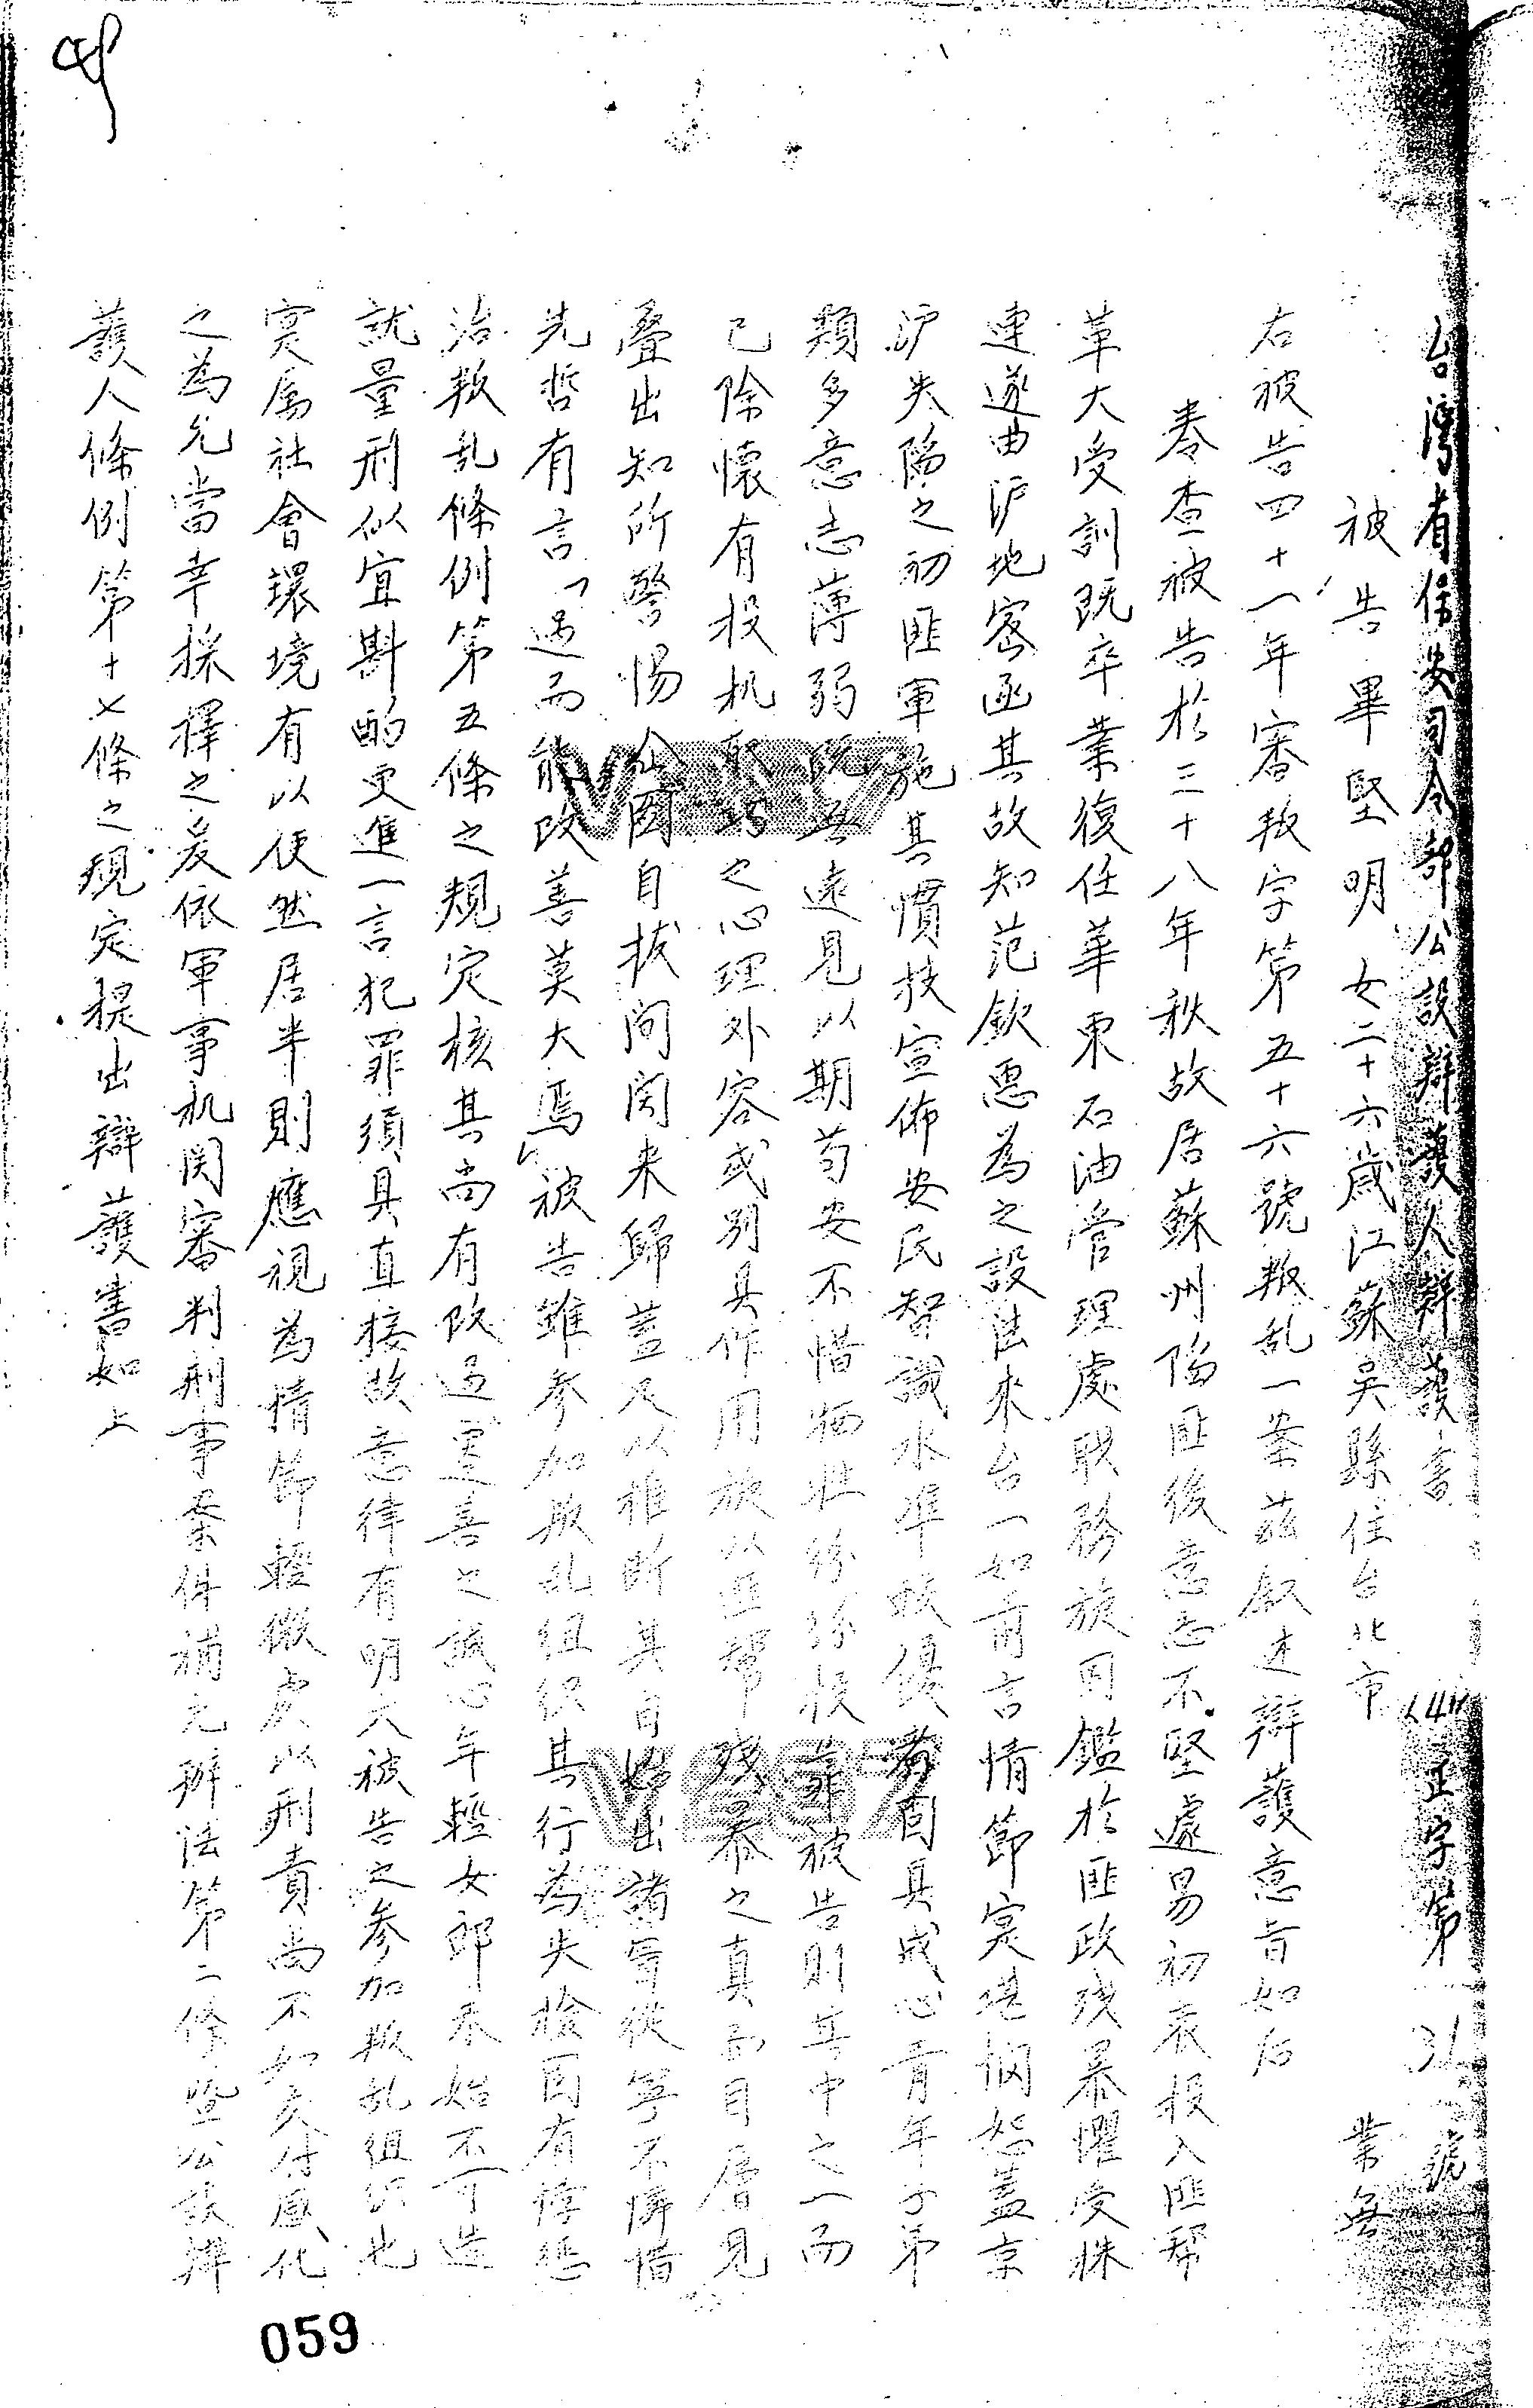 台灣省保安司令部公設辯護人辯護書 (41)正字第31號
被告畢堅明 女二十六歲江蘇吳縣住台北市 業無
右被告四十一年審叛字第五十六號叛乱一案茲叙述辯護意旨如后
卷查被告於三十八年秋故居蘇州陷匪後意志不堅處易初衷投入匪幫
革大受訓既卒業復任華東石油管理處職務旋因鑑於匪政殘暴懼受株
連遂由沪地密函其故知范欽惠為之設法來台一如前言情節寔堪憫恕蓋京
沪失陷之初匪軍施其慣技宣佈安民智識水準較優者固具戒心青年子弟
類多意志薄弱既無遠見以期苟安不惜牺牲紛紛投靠被告則其中之一而
已除懷有投机取巧之心理外容或別具作用旋以匪幫殘暴之真面目層見
疊出知所警惕企圖自拔间関来歸蓋足以推断其自始出諸盲從寧不憐惜
先哲有言「過而能改善莫大焉」被告雖参加叛乱组织其行為失檢固有悖懲
治叛乱條例第五條之規定核其尚有改過遷善之誠心年輕女郎未始不可造
就量刑似宜斟酌更進一言犯罪須具直接故意律有明文被告之参加叛乱组织也
寔属社會環境有以使然居半則應視為情節輕微處以刑責尚不如交付感化
之為允當幸採擇之爰依軍事机関審判刑事案件補充辦法第二條暨公設辯
護人條例第十七條之規定提出辯護書如上
059